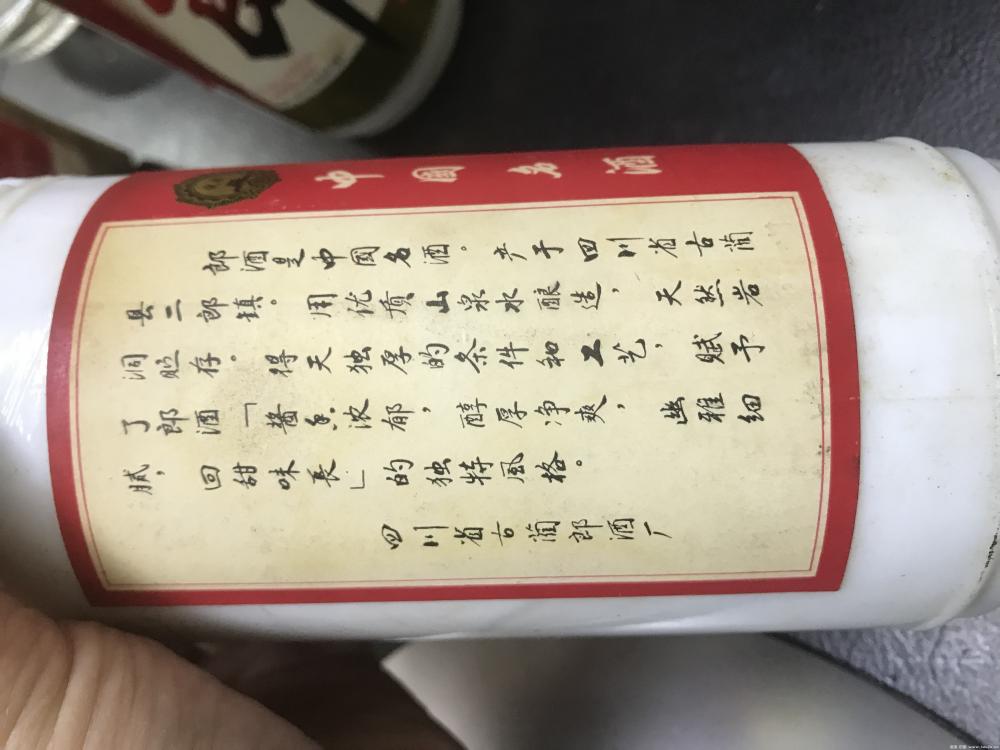 中國名酒
郎酒是中國名酒。产于四川省古蔺
县二郎镇。用优质山泉水酿造，天然岩
洞贮存。得天独厚的条件和工艺，赋予
了郎酒「酱香浓郁，醇厚净爽，幽雅细
腻，回甜味長」的独特風格。
四川省古蔺郎酒厂